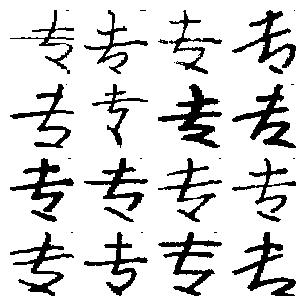 专专专专
专专专专
专专专专
专专专专